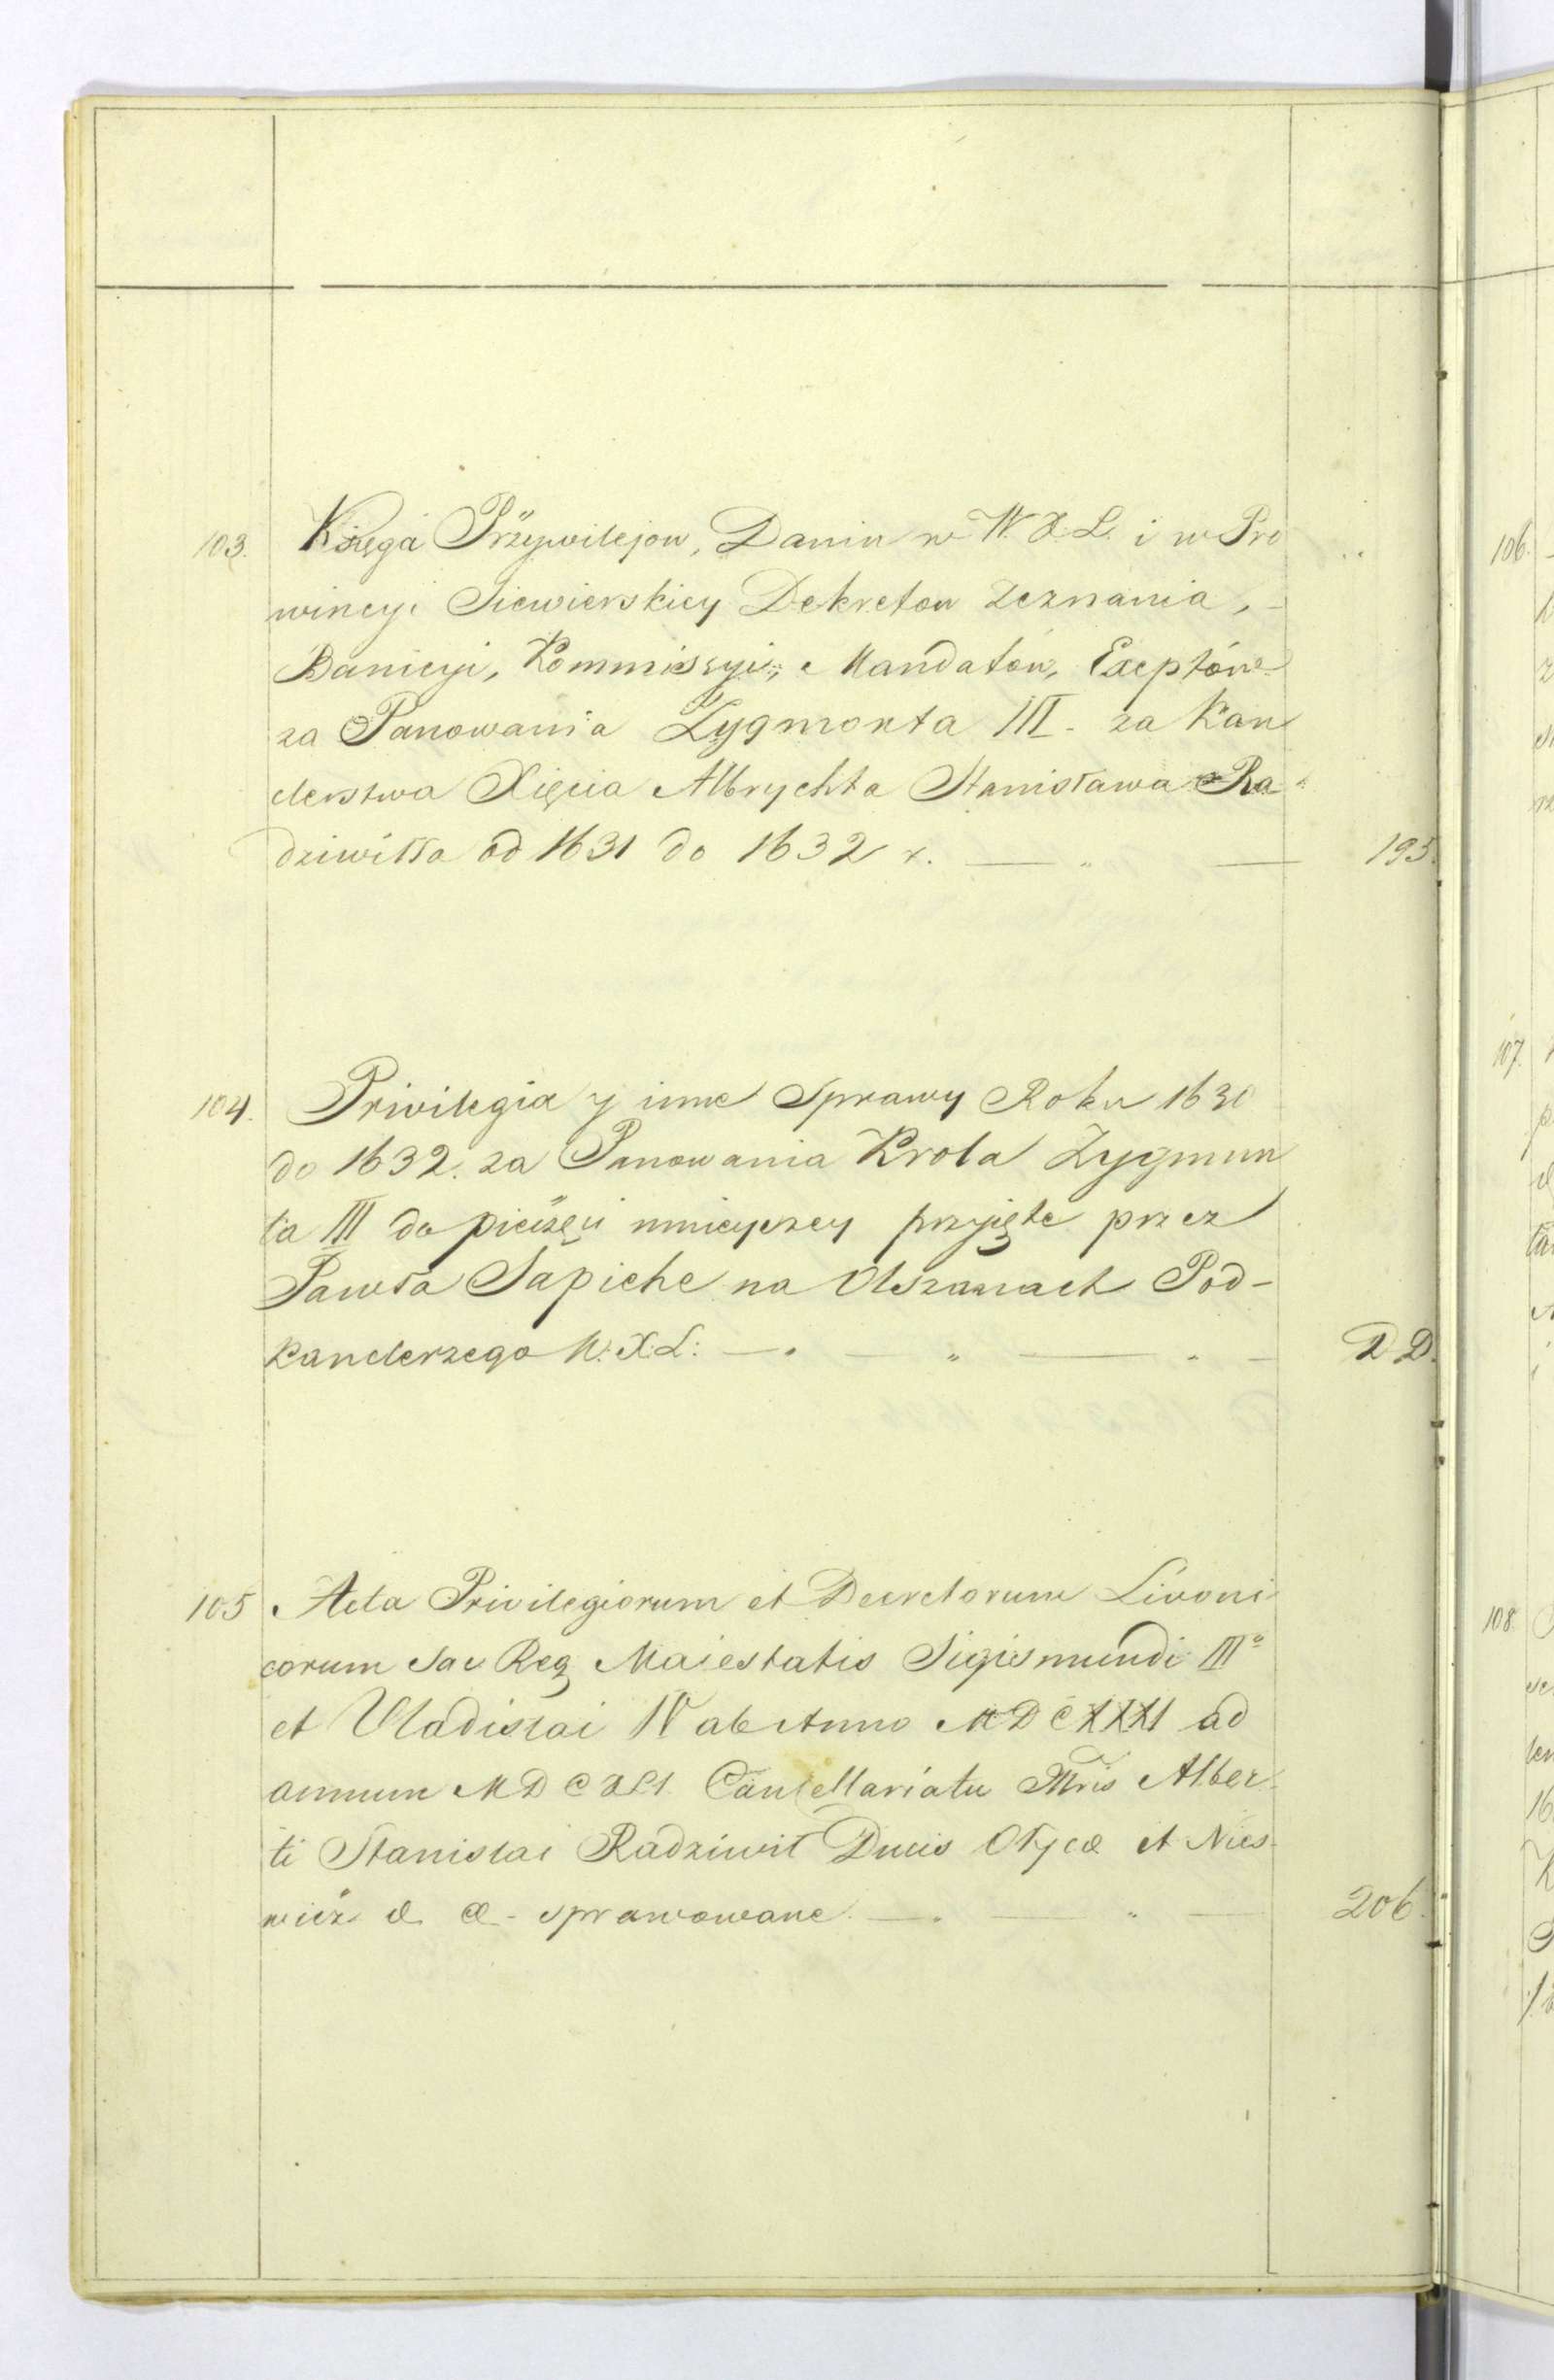 103. Księga Przywilejow, Danin w W. X. L. i w Pro
wincyi Siewierskiey Dekretow Zeznania,
Banicyi, Kommissyi, Mandatów, Exeptów
za Panowania Zygmonta III. za Kan
clerstwa Xięcia Albrychta Stanisława Ra-
dziwiłła od 1631 do 1632 r. 195.
104. Privilegia y inne Sprawy Roku 1630
do 1632. za Panowania Krola Zygmun
ta III do pieczęci mnieyszey przyięte przez
Pawła Sapiehe na Olszanach Pod-
kanclerzego W. X. L: D D.
105 Acta Privilegiorum et Decretorum Livoni
corum Sac Reg Maiestatis Sigismundi III
et Vladislai IV ab Anno MDCXXXI ad
annum MDCXLI. Cancellariatu Illris Alber-
ti Stanislai Radziwił Ducis Ołycæ et Nies-
wież & & - sprawowane. 206.
106.
107.
108.